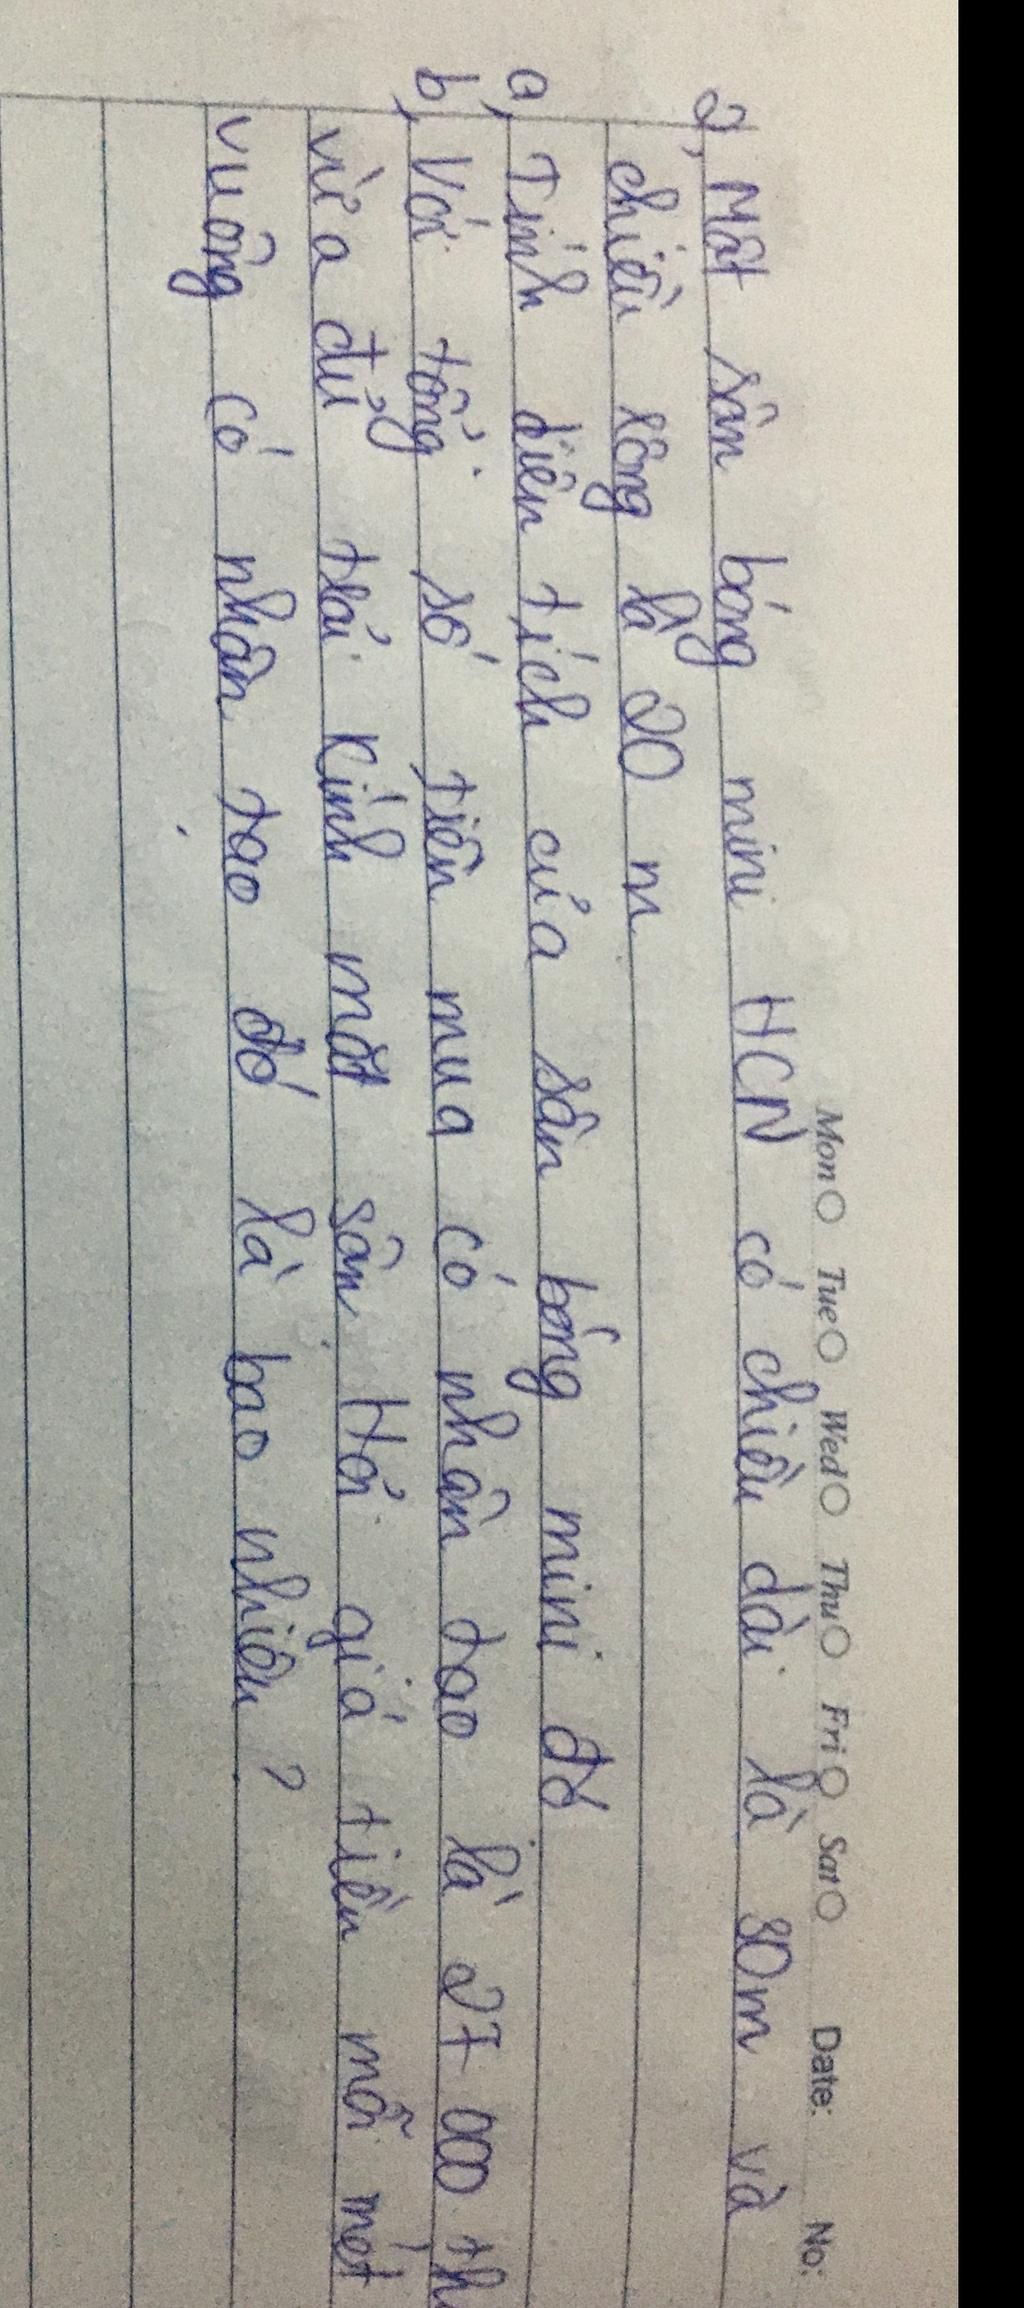 Mon Tue Wed Thu Fri Sat Date: No:
2, Một sân bóng mini HCN có chiều dài là 30m và
chiều rộng là 20 m
a, Tính diện tích của sân bóng mini đó
b, Với tổng số tiền mua cỏ nhân tạo là 27 000 th
vừa đủ trải kính một sân. Hỏi giá tiền mỗi mét
vuông cỏ nhân tạo đó là bao nhiêu ?